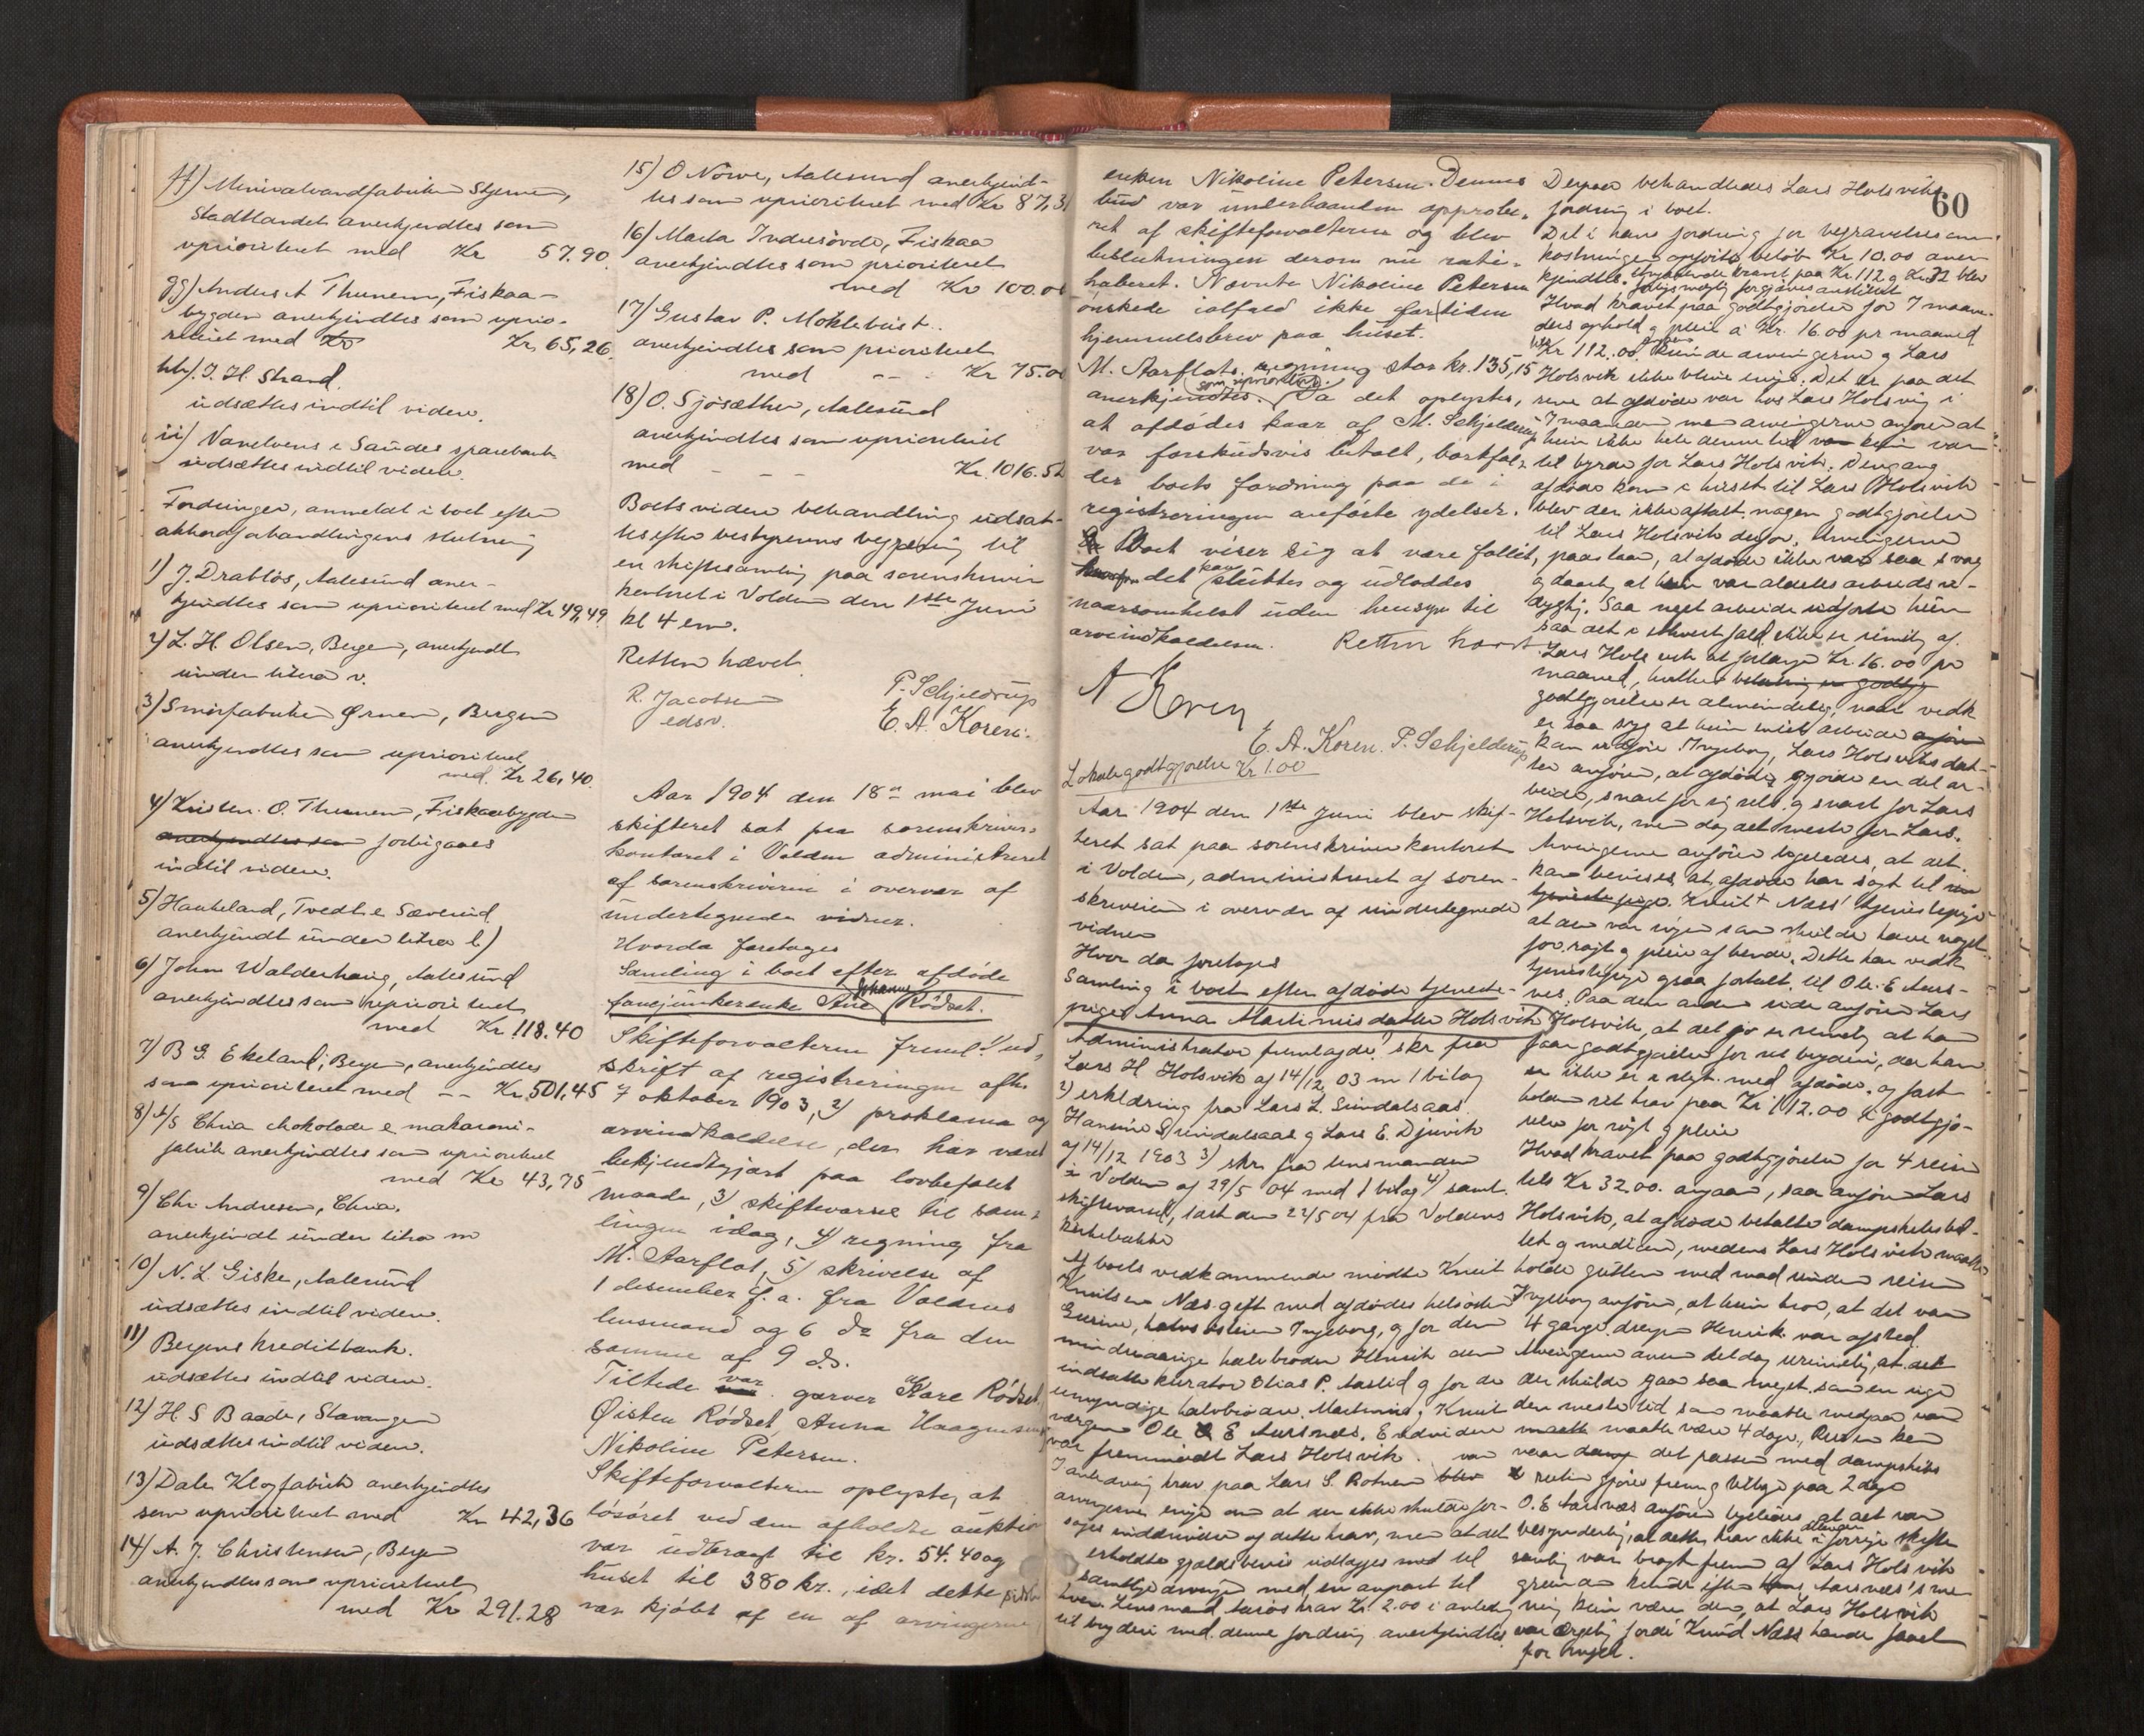 ff) Mineralvandfabriken Stjernen,
Stadtlandet anerkjendtes som
uprioriteret med Kr 57.90
gg) Anders A Thunem, Fiskaa-
bygden anerkjendtes som uprio-
riteret med Kr Kr. 65,26
hh). J. H. Strand.
udsættes indtil videre.
ii) Vanelvens & Sandes sparebank
udsættes indtil videre.
Fordringer, anmeldt i boet efter
akkordforhandlingens slutning
1) J. Drabløs, Aalesund aner-
kjendtes som uprioriteret med Kr 49,49
2) L. H. Olsen, Bergen, anerkjendt
under litra v.
3) Smørfabriken Ørnen, Bergen
anerkjendtes som uprioriteret
med Kr 26,40.
4) Kristen O. Thunem, Fiskaabygden
anerkjendtes som forbigaaes
indtil videre.
5) Haukeland, Tvedt & Sæverud
anerkjendt under litra l)
6) Johan Walderhaug, Aalesund
anerkjendtes som uprioriteret
med Kr. 118.40
7) B G. Ekeland, Bergen, anerkjendtes
som uprioriteret med -- Kr. 501,45
8) A/S Chria chokolade & makaroni-
fabrik anerkjendtes som uprioriteret
med Kr 43,75
9) Chr Andresen, Chria.
anerkjendt under litra m
10) N. L. Giske, Aalesund
udsættes indtil videre.
11) Bergens kreditbank.
udsættes indtil videre.
12) H. S Baade, Stavanger
udsættes indtil videre.
13) Dale Klogfabrik anerkjendtes
som uprioriteret med Kr 42,36
14) A. J. Christensen, Bergen
anerkjendtes som uprioriteret
med Kr 291.28
15) O Nörve, Aalesund anerkjend-
tes som uprioriteret med Kr 87,31
16) Marta Indresövde, Fiskaa
anerkjendtes som prioriteret
med Kr 100.00
17) Gustav P. Moklebust.
anerkjendtes som prioriteret
med -- Kr 75.00
18) O. Sjösæther, Aalesund
anerkjendtes som uprioriteret
med - - - Kr. 1016.52
Boets videre behandling udsat-
tes efter bestyrerens begjæring til
en skiftesamling paa sorenskriver
kontoret i Volden den 1ste Juni
kl 4 em.
Retten hævet.
R. Jacobsen P. Schjeldrup
edsv. E. A. Koren.
Aar 1904 den 18de mai blev
skifteret sat paa sorenskriver-
kontoret i Volden administreret
af sorenskriveren i overvær af
undertegnede vidner.
Hvorda foretoges
Samling i boet efter afdöde
fanejunkerenke Ane Johanne Rödset.
Skifteforvalteren freml. 1) ud-
skrift af registreringen afh.
7 oktober 1903, 2) proklama og
arvindkaldelse, der har været
bekjendtgjort paa lovbefalet
maade, 3) skiftevarsel til sam-
lingen idag, 4) regning fra
M. Aarflot, 5) skrivelse af
1 desember f. a. fra Voldens
lensmand og 6 do fra den
samme af 9 ds.
Tilstede var garver Kare Rödset
Øisten Rödset, Anna Haagensen
Nikoline Petersen.
Skifteforvalteren oplyste, at
lösöret ved den afholdte auktion
var udbragt til kr. 54.40 og
huset til 380 kr., idet dette sidste
var kjöbt af en af arvingerne,
enken Nikoline Petersen. Dennes
bud var underhaanden approbe-
ret af skifteforvalteren og blev
beslutningen derom nu rati-
haberet. Nævnte Nikoline Petersen
ønskede ialfald ikke for tiden
hjemmelsbrev paa huset.
M. Aarflots regning stor kr. 135,15
anerkjendtes. som uprioriteret. Da det oplystes,
at afdødes kaar af M. Schjelderup
var forskudsvis betalt, bortfal-
der boets fordring paa de i
registreringen anførte ydelser.
Boet viser sig at være fallit,
hvorfor det kan sluttes og udloddes
naarsomhelst uden hensyn til
arvindkaldelsen. Retten hævet
A Koren
E. A. Koren. P. Schjelderup
Lokalegodtgjørelse Kr 1.00
Aar 1904 den 1ste Juni blev skif-
teret sat paa sorenskriverkontoret
i Volden, administreret af soren-
skriveren i overvær af undertegnede
vidner
Hvor da foretoges
Samling i boet efter afdøde tjeneste-
pige Anna Martinusdatter Holsvik
Administrator fremlagde 1) skr fra
Lars H Holsvik af 14/12 03 m 1 bilag
2) erklæring fra Lars L. Sundalsaas
Hansine Sundalsaas og Lars E. Djuvik
af 14/12 1903 3) skr fra lensmanden
i Volden af 29/5 04 med 1 bilag 4) samt.
skiftevarsel, læst den 22/5 04 fra Voldens
kirkebakke
Af boets vedkommende mødte Knut
Knutsen Næs gift med afdødes helsøster
Gurine, halvsøsteren Ingeborg, og for den
mindreaarige halvbroder Henrik den
indsatte kurator Elias P. Aaslid og for de
umyndige halvbrødre Martinus og Knut
værgen Ole E Aursnes. Endvidere
var fremmødt Lars Holsvik.
I anledning krav paa Lars S. Rotnes blev
arvingerne enige om at der ikke skulde for-
søges inddrivelse af dette krav, men at det
erholdte gjældsbevis udlægges med til
samtlige arvinger med en anpart til
hver. Lensmand Aarøs krav Kr 2.00 i anledning
til bryderi med denne fordring anerkjendtes
60
Derpaa behandledes Lars Holsviks
fordring i boet.
Det i hans fordring for begravelsesom-
kostninger opførte beløb Kr 10.00 aner-
kjendtes. Angaaende kravet paa Kr. 112 og Kr. 32 blev
forligsmægling forgjæves anstillet
Hvad kravet paa godtgjørelse for 7 maane-
ders ophold og pleie a Kr. 16.00 pr maaned
Kr 112.00 kunde arvingerne og Lars
Holsvik ikke blive enige. Det er paa det
rene at afdøde var hos Lars Holsvig i
7 maaneder men arvingerne anfører at
hun ikke hele denne tid var
til byrde for Lars Holsvik. Dengang
afdøde kom i huset til Lars Holsvik
blev der ikke aftalt nogen godtgjørelse
til Lars Holsvik derfor. Arvingerne
paastaar, at afdøde ikke var saa svag
og daarlig at hun var aldeles arbeidsu-
dygtig. Saa meget arbeide udførte hun
saa det i ethvert fald ikke er rimelig af
Lars Holsvik at forlange Kr. 16.00 pr
maaned, hvilken
godtgjørelse er almindelig, naar vedk
er saa syg at hun intet arbeide
kan udføre. Ingeborg, Lars Holsviks dat-
ter anfører, at afdøde gjorde en del ar-
beide, snart for sig selv og snart for Lars
Holsvik, men dog det meste for Lars.
Arvingerne anfører ligeledes, at det
kan bevises, at afdøde har sagt til
Knut Næss' tjenestepige
at der var ingen som skulde have noget
for røgt og pleie af hende. Dette har vedk
tjenestepige ogsaa fortalt til Ole E Aurs-
nes. Paa den anden side anfører Lars
Holsvik, at det jo er rimelig at han
faar godtgjørelse for sit bryderi, da han
ikke er i slegt med afdøde, og fast-
holder sit krav paa Kr 112.00 i godtgjø-
relse for røgt og pleie
Hvad kravet paa godtgjørelse for 4 reiser
tils Kr 32.00. angaar, saa anfører Lars
Holsvik, at afdøde betalte dampskibsbil-
let og medicin, medens Lars Holsvik maatte
holde gutten med mad under reisen
Ingeborg anfører, at hun tror, at det var
4 gange drengen Henrik var afsted.
Arvingerne anser det dog urimelig, at det
der skulde gaa saa meget som en uge
den meste tid som maatte medgaa
maatte være 4 dage, Reisen kan
naar det passer med dampskibs
ruten gjøres frem og tilbage paa 2 dage
O. E Aursnes anfører ligeledes, at det var
besynderlig, at dette krav ikke i forrige skifte
samling var bragt frem af Lars Holsvik
grunden hertil efter Aursnes's me-
ning kun være den, at Lars Holsvik
var ærgelig fordi Knud Næss havde faaet
for meget.